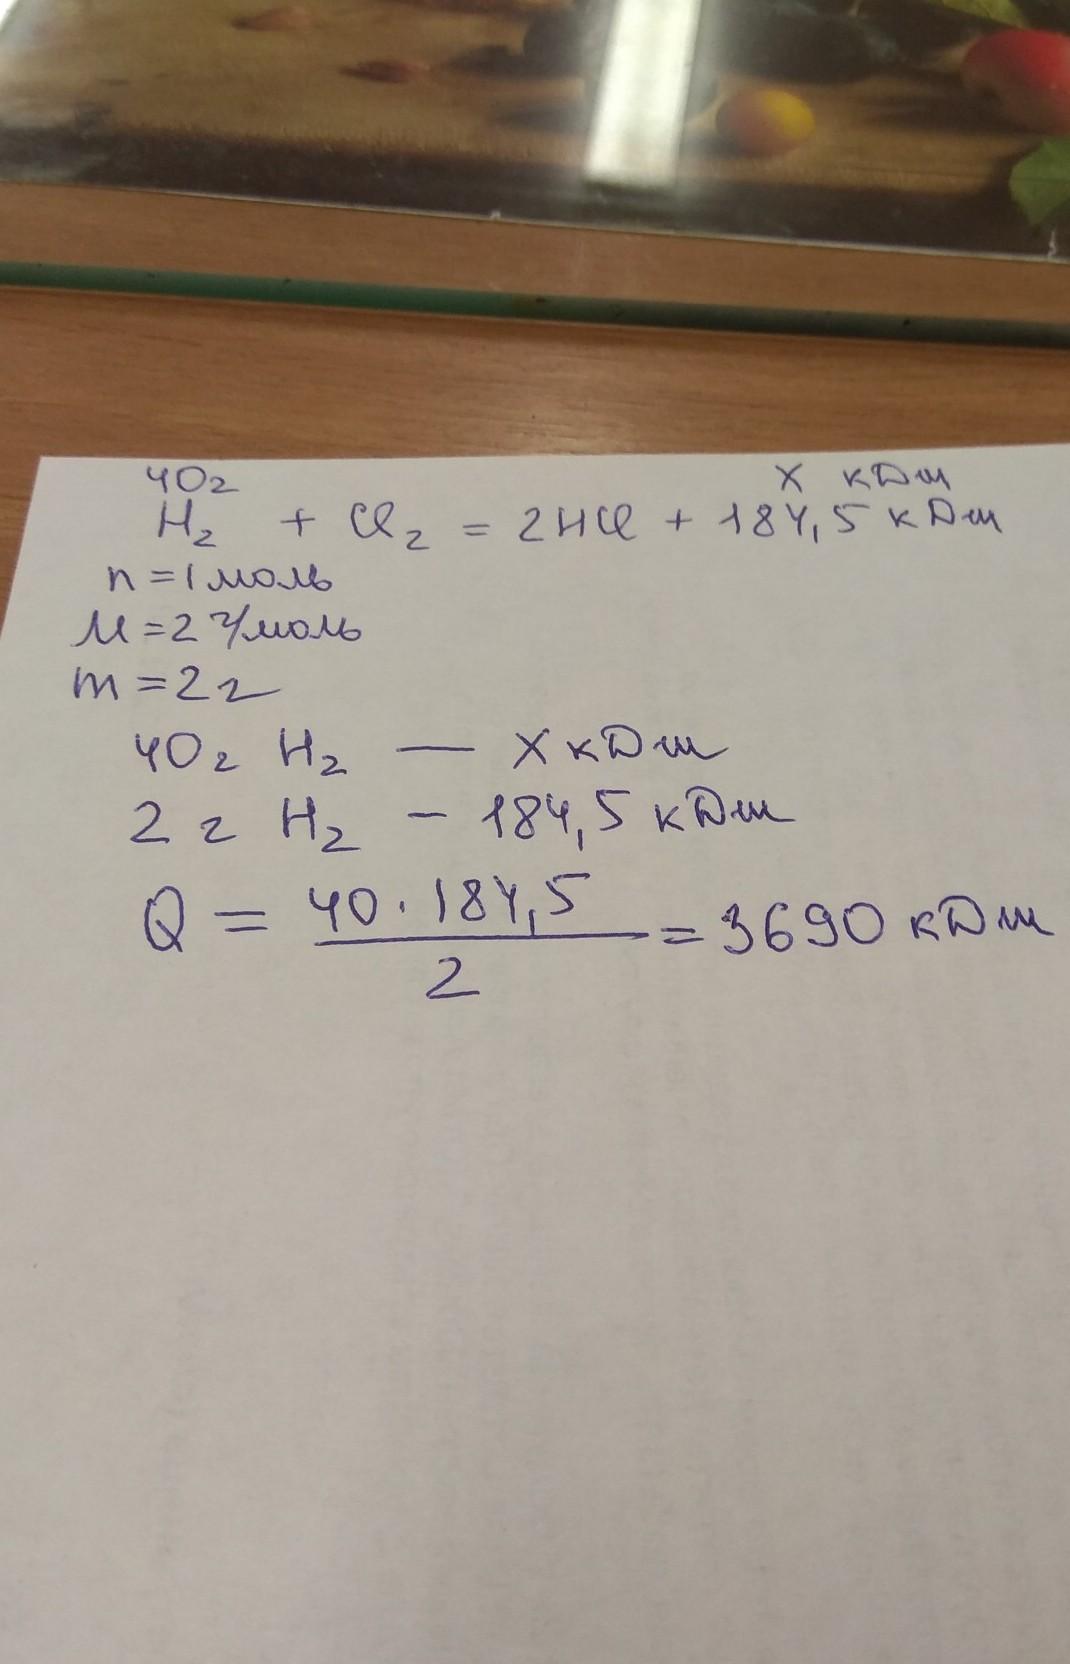 40г х кДж
H₂ + Cl₂ = 2HCl + 184,5 кДж
n = 1 моль
M = 2 г/моль
m = 2 г
40 г H₂ — х кДж
2 г H₂ - 184,5 кДж
Q = 40 · 184,5 / 2 = 3690 кДж